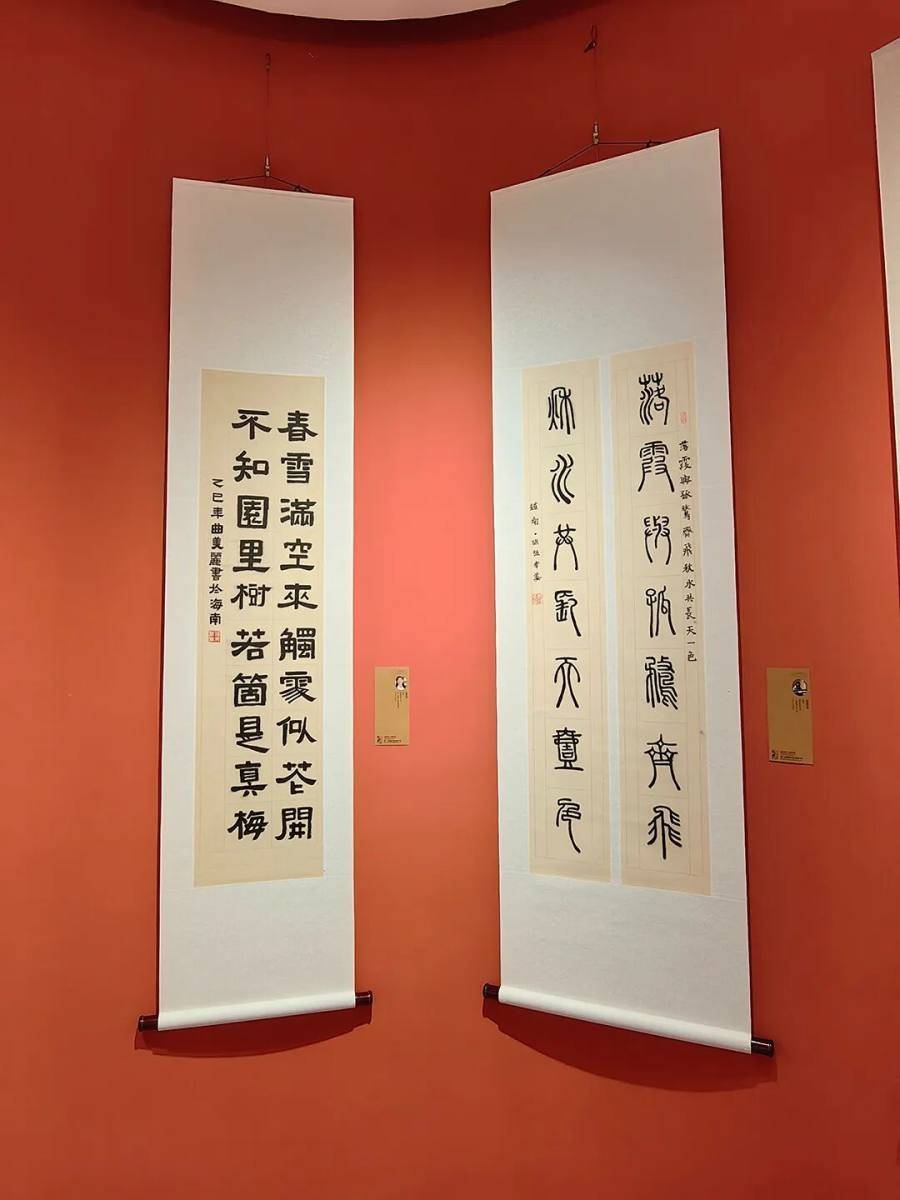 落霞與孤鶩齊飛秋水共長天一色
落霞與孤鶩齊飛
秋水共長天壹色
春雪滿空來觸處似花開
不知園里樹若箇是真梅
乙巳年曲美麗書於海南